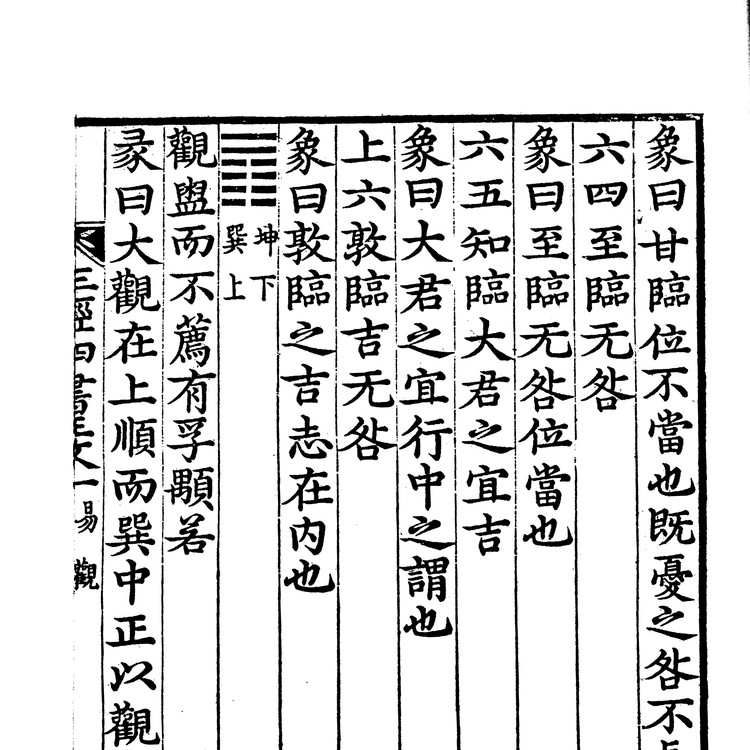 象曰甘臨位不當也既憂之咎不
六四至臨无咎
象曰至臨无咎位當也
六五知臨大君之宜吉
象曰大君之宜行中之謂也
上六敦臨吉无咎
象曰敦臨之吉志在内也
坤下
巽上
觀盥而不薦有孚顒若
彖曰大觀在上順而巽中正以觀
三經四書正文一易 觀